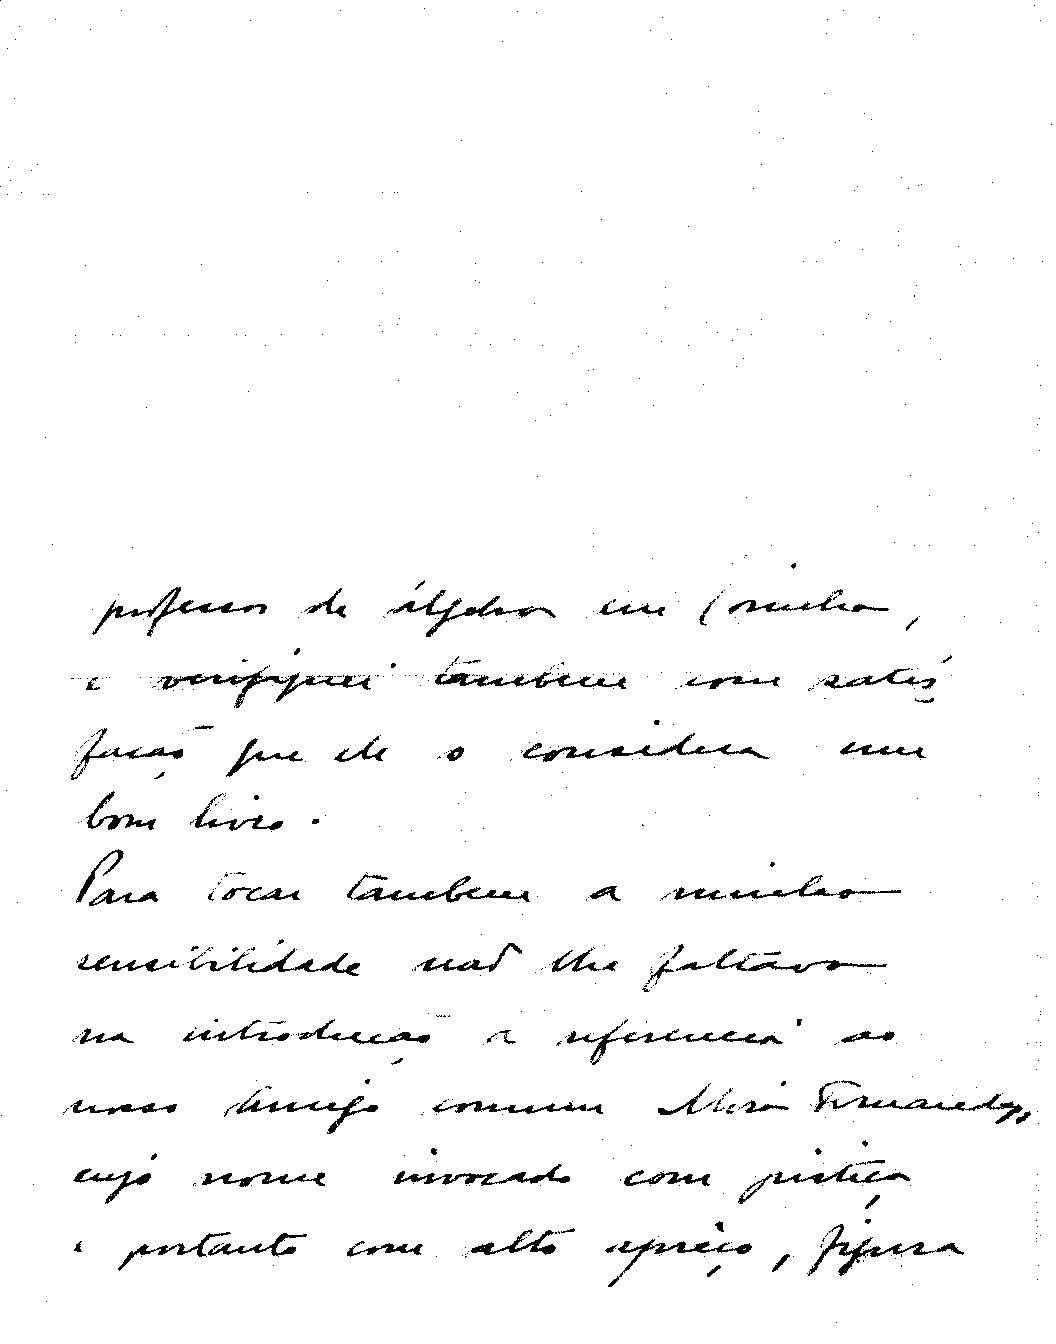 professor de álgebra em Coimbra,
e verifiquei tambem com satis
fação que ele o considera um
bom livro.
Para tocar tambem a minha
sensibilidade não lhe faltava
na introdução a referencia ao
nosso amigo comum Mira Fernandes,
cujo nome invocado com justiça
e portanto com alto apreço, figura